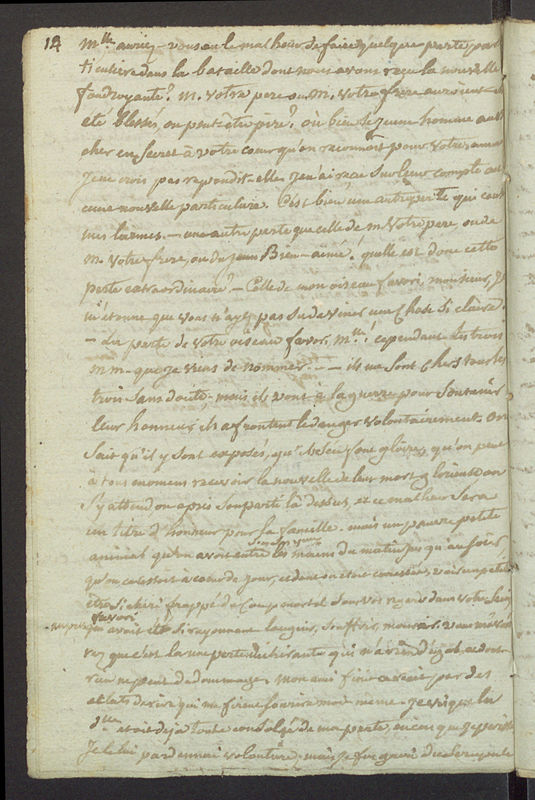 12 Mlle auriez-vous eu le malheur de faire quelque perte par
ticuliere dans la bataille dont nous avons reçu la nouvelle
foudroyante? M. votre pere ou M. votre frere auroient
été blessés, ou peut être pire? ou bien le jeune homme
cher en secret à votre coeur qu'on reconnoit pour votre amant
Je ne crois pas repondit-elle, je n'ai recu sur leur compte au
cune nouvelle particuliere. C'est bien une autre perte qui cause
mes larmes. — une autre perte que celle de M votre pere, ou de
M. votre frere, ou du jeune Bien-aimé! quelle est donc cette
perte extraordinaire? — Celle de mon oiseau favori, monsieur, je
m'étonne que vous n'ayez pas su deviner une chose si claire.
— La perte de votre oiseau favori, Mlle! cependant les trois
MM. que je viens de nommer — — ils me sont chers tous les
trois sans doute, mais ils vont à la guerre pour soutenir
leur honneur, ils affrontent le danger volontairement. on
sait qu'il y sont exposés, qu'on peut
à tous moments recevoir la nouvelle de leur mort glorieuse on
s'y attend on a pris son parti là dessus, et ce malheur sera
un titre d'honneur pour sa famille. mais un pauvre petit
animal qu'on avoit entre les mains du matin jusqu'au soir,
qu'on caressoit à coeur de jour, et dont on etoit caressé, voir un petit
etre si chéri frappé du coup mortel sous vos yeux dans votre sein
favori
qui avoit été si rayonnant languir, souffrir, mourir. vous m'avoue
rez que c'est là une perte dechirante qui n'a rien d'égal, et dont
rien ne peut dedommager. mon ami finit ce récit par des
eclats de rire qui me firent sourire moi même. Je vis que la
Dlle etoit deja toute consolée de ma perte,
Je le lui pardonnai volontiers, mais je fus gueri